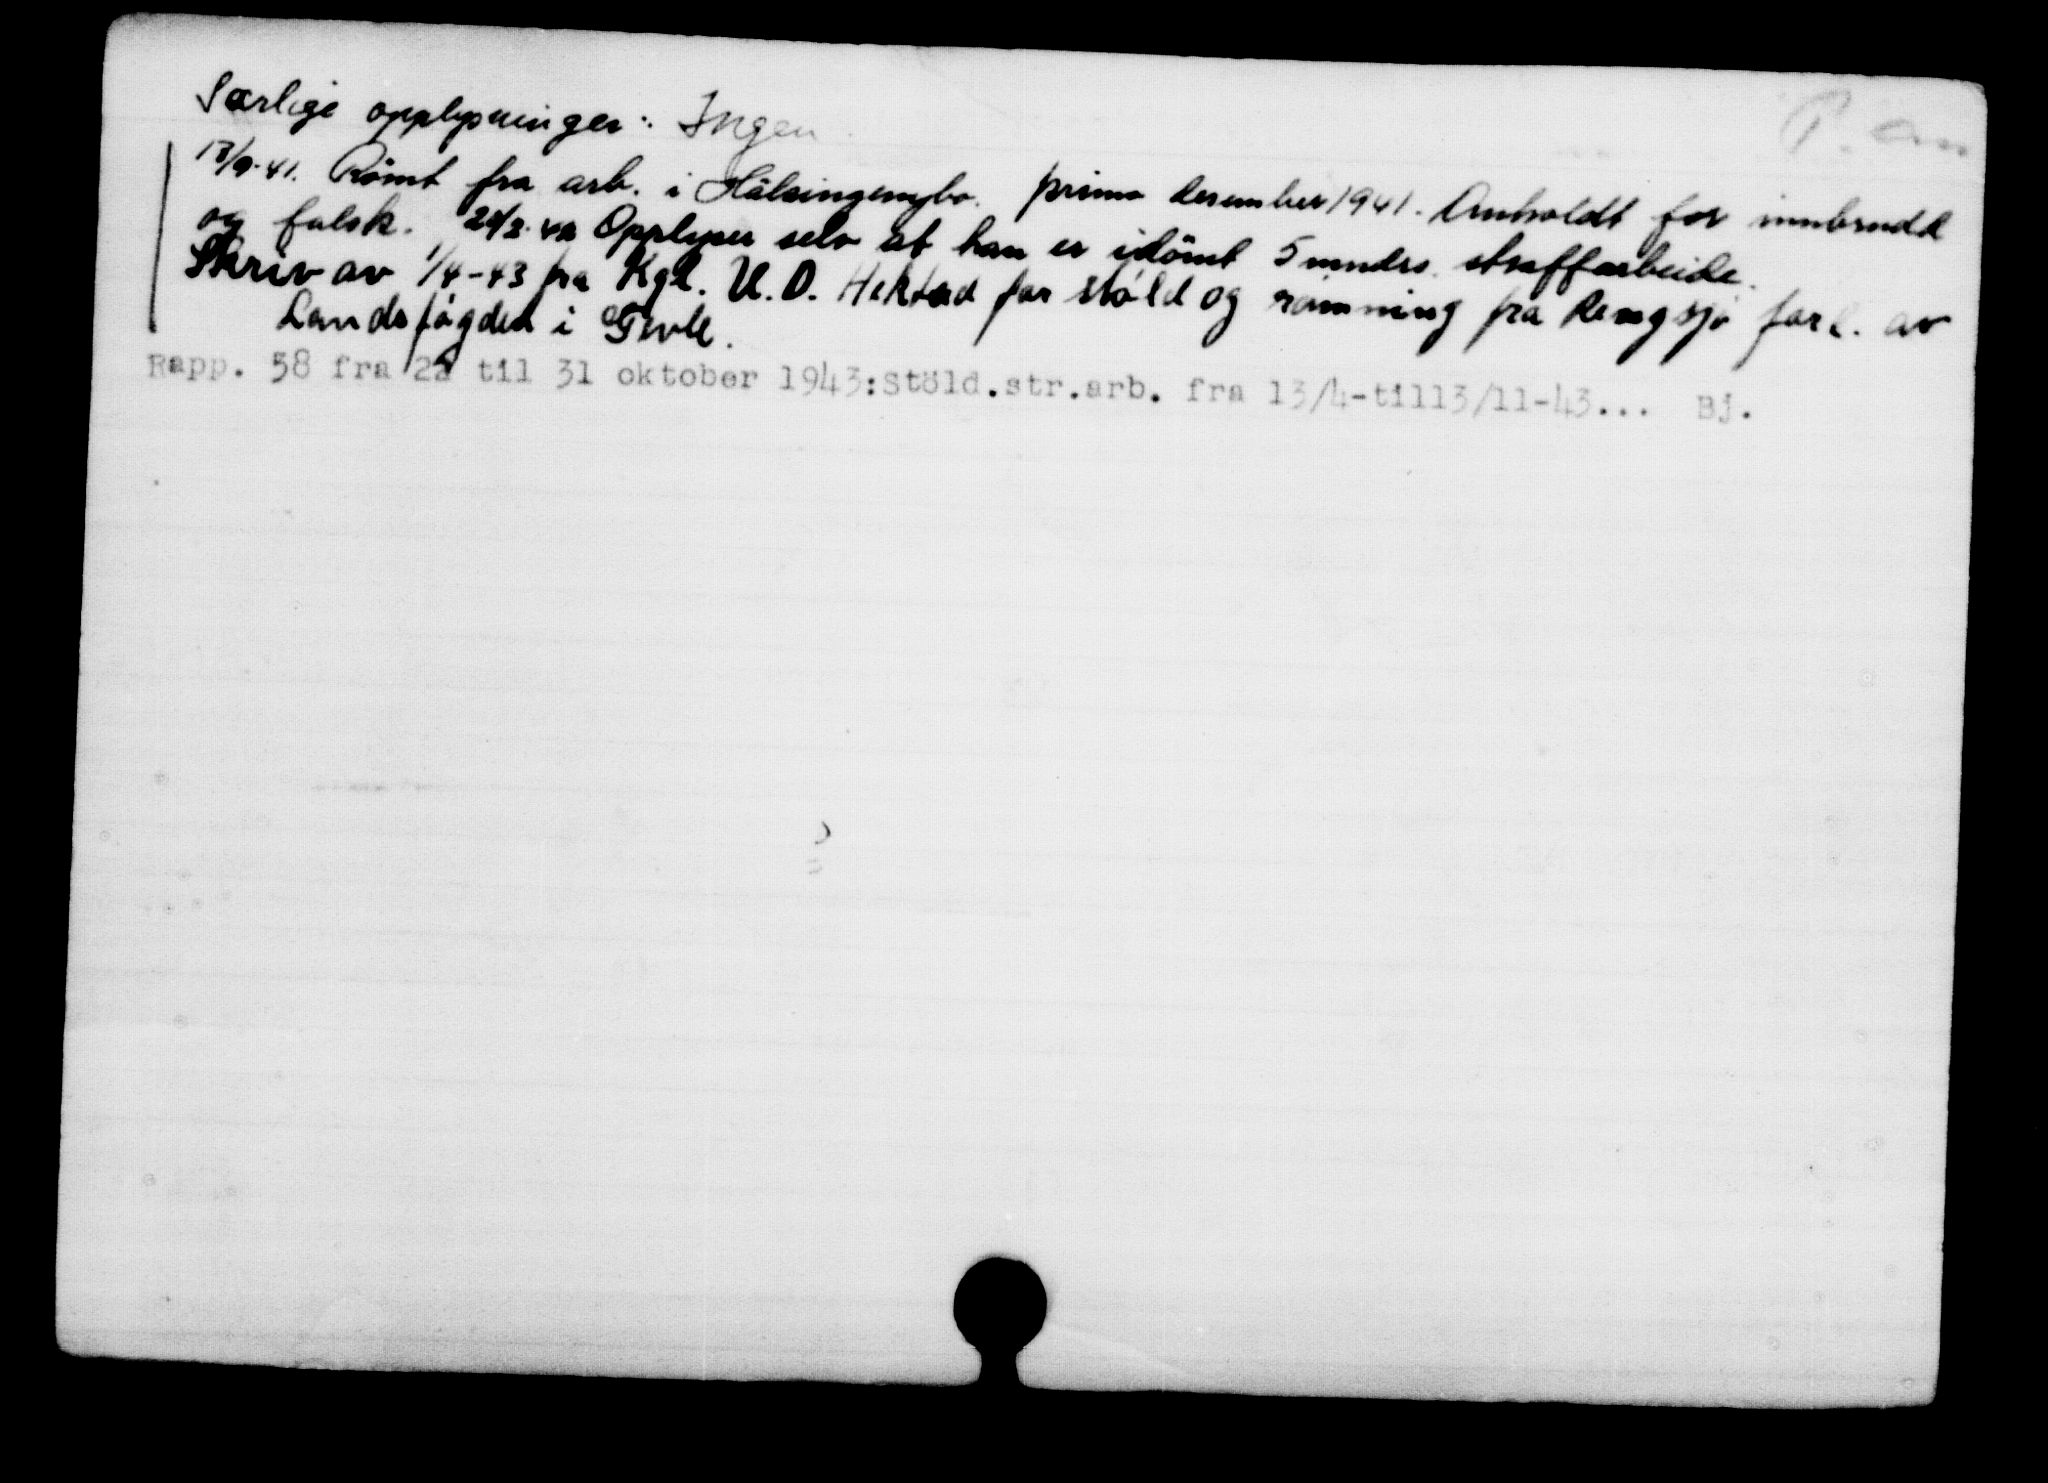 Særlige opplysninger: Ingen
P. an
13/9.41. Römt fra arb. i Hälsingenybo. primo desember 1941. Anholdt for innbrudd
og falsk. 20/2.42 Opplyser selv at han er idömt 5 mndrs. straffarbeide.
Skriv av 1/4-43 fra Kgl. U.D. Hektad for stöld og römning fra Rengsjö forl. av
Landsfogden i Gevle.
Rapp. 58 fra 22 til 31 oktober 1943:Stöld.str.arb. fra 13/4-till3/11-43... Bj.